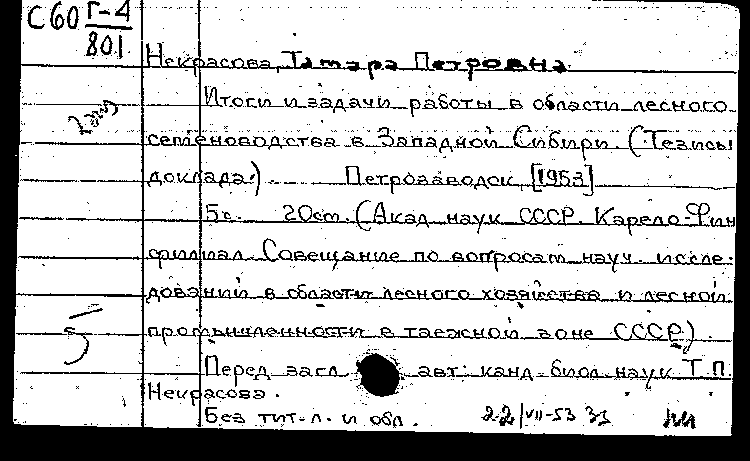 С60 Г-4
801
Некрасова, Тамара Петровна.
2 экз
Итоги и задачи работы в области лесного
семеноводства в Западной Сибири. (Тезисы
доклада.) Петрозаводск, [1953]
5 с. 20 см. (Акад. наук СССР. Карело-Фин.
филиал. Совещание по вопросам науч. иссле-
дований в области лесного хозяйства и лесной
промышленности в таежной зоне СССР).
5
Перед загл. авт: канд. биол. наук Т.П.
Некрасова.
Без тит. л. и обл. 22/VII-53